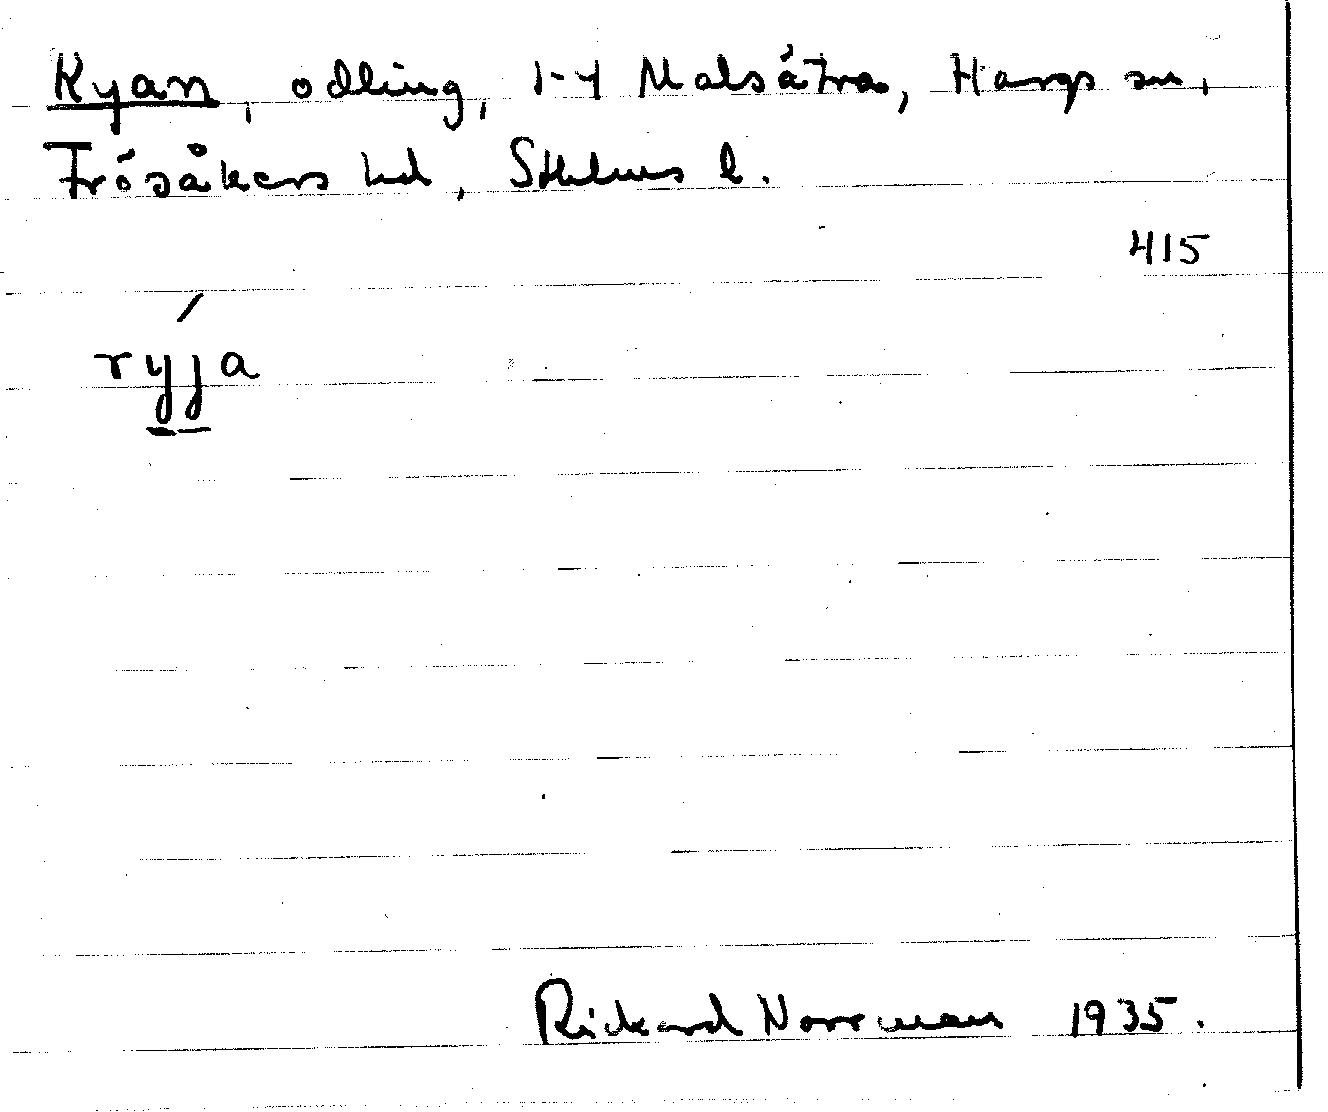 Ryan, odling, 1-4 Malsätra, Hargs sn,
Frösåkers hd, Sthlms l.
415
rýja
Rickard Norrman 1935.